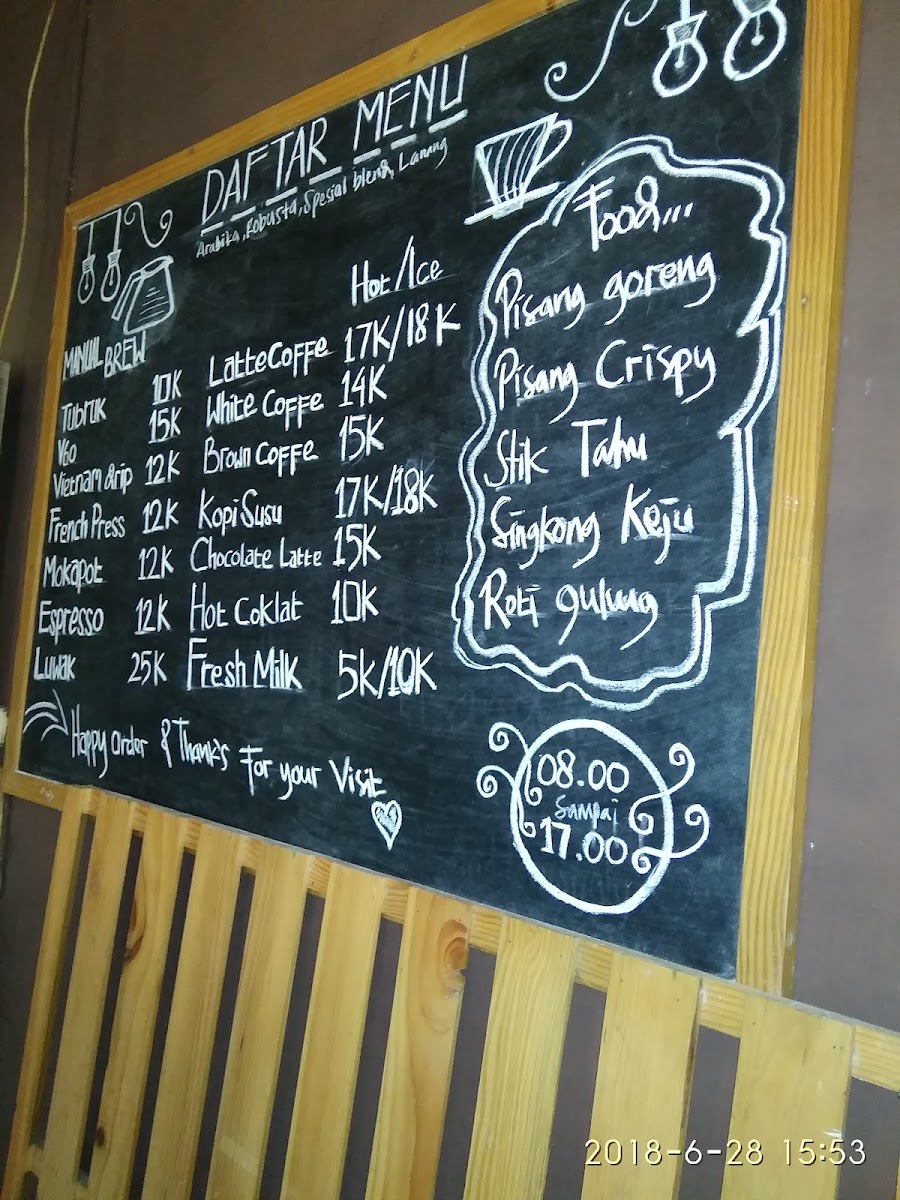 DAFTAR MENU
Arabika, Robusta, Spesial blend, Lanang
MANUAL BREW
Tubruk 10K
V60 15K
Vietnam drip 12K
French Press 12K
Mokapot 12K
Espresso 12K
Luwak 25K
Hot/Ice
Latte Coffe 17K/18K
White Coffe 14K
Brown Coffe 15K
Kopi Susu 17K/18K
Chocolate Latte 15K
Hot Coklat 10K
Fresh Milk 5K/10K
Food...
Pisang goreng
Pisang Crispy
Stik Tahu
Singkong Keju
Roti gulung
Happy Order & Thank's For your Visit
08.00
Sampai
17.00
2018-6-28 15:53